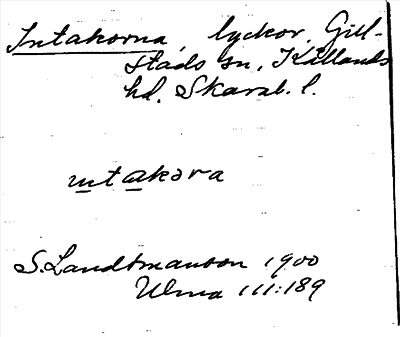 Intakorna, lyckor, Gill-
stads sn, Kållands
hd, Skarab. l.
intakəra
S. Landtmanson 1900
Ulma 111:189